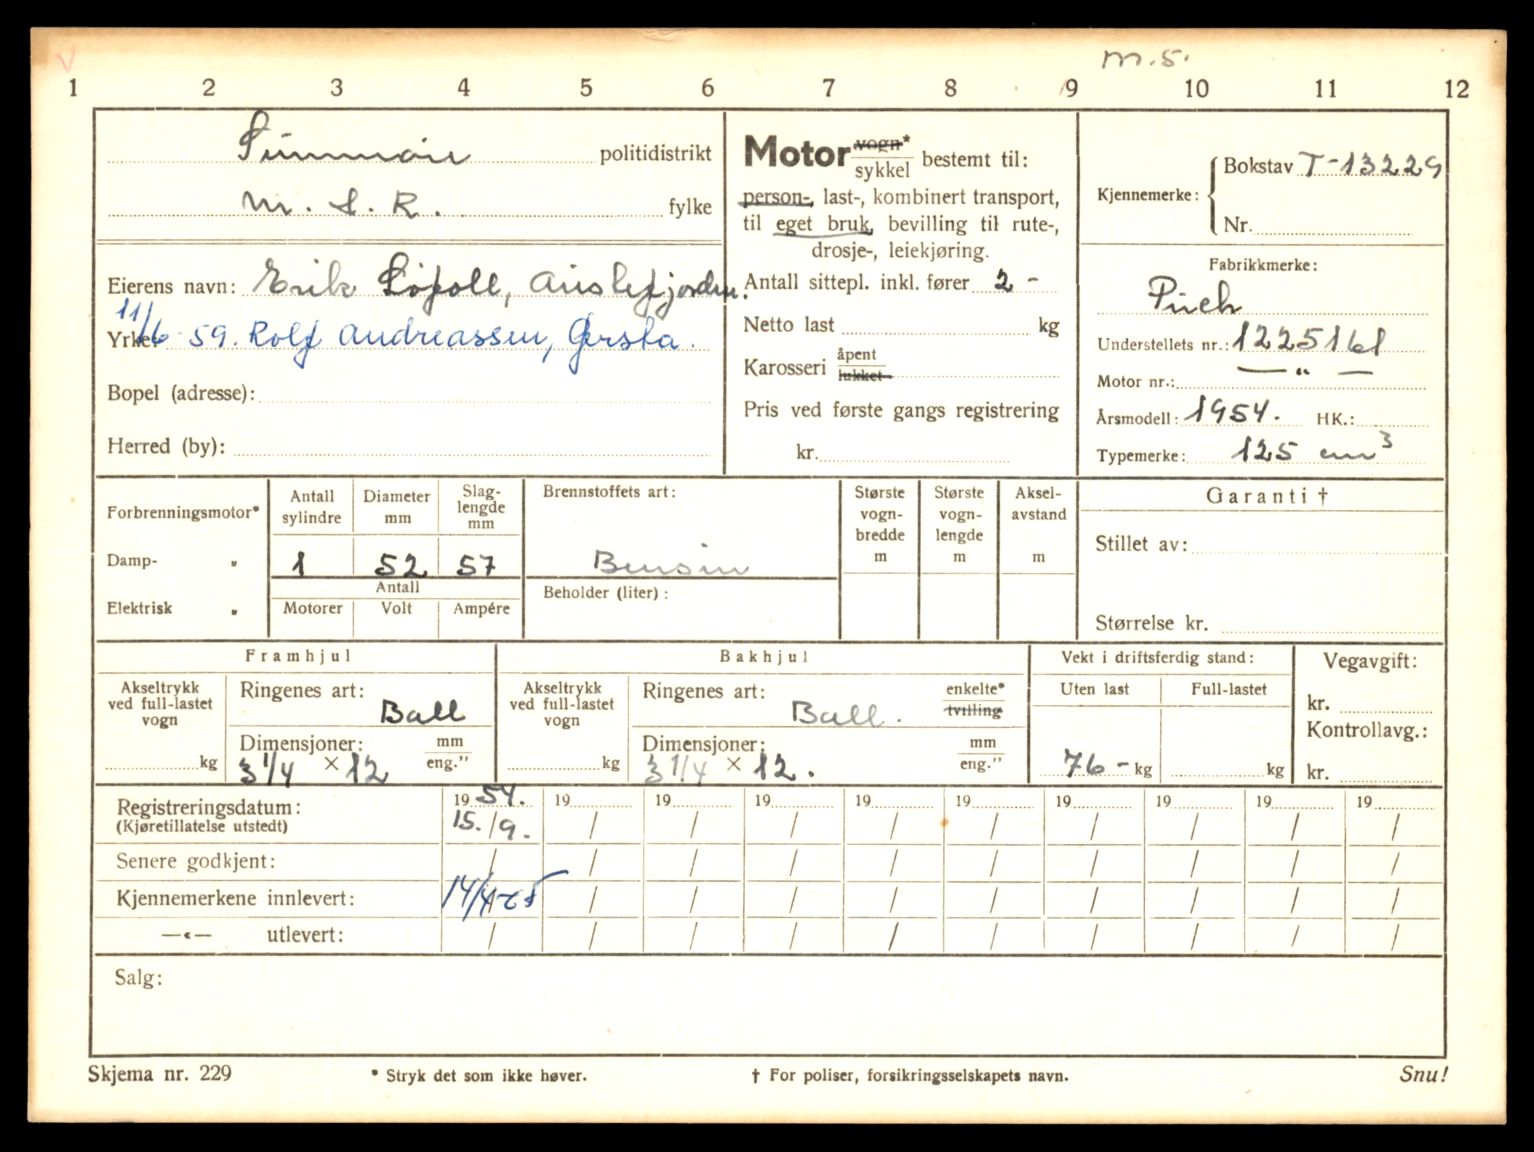 m.s.
1 2 3 4 5 6 7 8 9 10 11 12
Sunnmøre politidistrikt
M. & R. fylke
Eierens navn: Erik Løfoll, Austefjorden.
11/6 59. Rolf Andreassen, Ørsta.
Yrke:
Bopel (adresse):
Herred (by):
Motor vogn* sykkel bestemt til:
person-, last-, kombinert transport,
til eget bruk, bevilling til rute-,
drosje-, leiekjøring.
Antall sittepl. inkl. fører 2 -
Netto last kg
Karosseri åpent lukket
Pris ved første gangs registrering
kr.
Kjennemerke: Bokstav T-13229
Nr.
Fabrikkmerke:
Puch
Understellets nr.: 1225161
Motor nr.: — " —
Årsmodell: 1954. HK.:
Typemerke: 125 cm3
Forbrenningsmotor*
Damp- "
Elektrisk "
Antall sylindre Diameter mm Slag-lengde mm
1 52 57
Antall
Motorer Volt Ampére
Brennstoffets art:
Bensin
Beholder (liter):
Største vogn-bredde m
Største vogn-lengde m
Aksel-avstand m
Garanti †
Stillet av:
Størrelse kr.
Framhjul
Akseltrykk ved full-lastet vogn
kg
Ringenes art: Ball
Dimensjoner: mm eng."
3 1/4 × 12
Bakhjul
Akseltrykk ved full-lastet vogn
kg
Ringenes art: Ball. enkelte* tvilling
Dimensjoner: mm eng."
3 1/4 × 12.
Vekt i driftsferdig stand:
Uten last Full-lastet
76 - kg kg
Vegavgift:
kr.
Kontrollavg.:
kr.
Registreringsdatum: 19 54. 19 19 19 19 19 19 19 19 19
(Kjøretillatelse utstedt) 15. / 9. / / / / / / / / /
Senere godkjent: / / / / / / / / / /
Kjennemerkene innlevert: 14/4-65 / / / / / / / / /
—«— utlevert: / / / / / / / / / /
Salg:
Skjema nr. 229 * Stryk det som ikke høver. † For poliser, forsikringsselskapets navn. Snu!